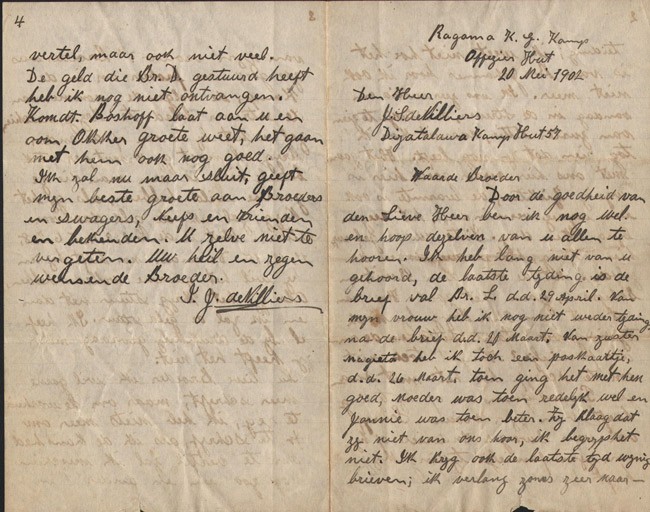 4
vertel, maar ook niet veel.
De geld die Br. D. gestuurd heeft
heb ik nog niet ontvangen.
Komdt. Boshoff laat aan u en
oom Okkher groete weet, het gaan
met hem ook nog goed.
Ik zal nu maar sluit, geeft
mijn beste groete aan Broeders
en swagers, neefs en vrienden
en bekenden. U zelve niet te
vergeten. Uw heil en zegen
wensende Broeder.
S. J. deVilliers
Ragama K. G. Kamp
Offizier Hut
20 Mei 1902
Den Heer
J. S. deVilliers
Diyatalawa Kamp Hut 57
Waarde Broeder
Door de goedheid van
den Lieve Heer ben ik nog wel
en hoop dezelven van u allen te
hooren. Ik heb lang niet van u
gehoord, de laatste tyding is de
brief val Br. L. d.d. 29 April. Van
mijn vrouw heb ik nog niet weder tyding
na de brief d.d. 21 Maart. Van zuster
heb ik toch een poskaartje,
d.d. 26 Maart. toen ging het met hen
goed, moeder was toen redelijk wel en
Jannie was toen beter. Zy klaag dat
zy niet van ons hoor, ik begryp het
niet. Ik kryg ook de laatste tyd wynig
brieven; ik verlang zoms zeer naar—